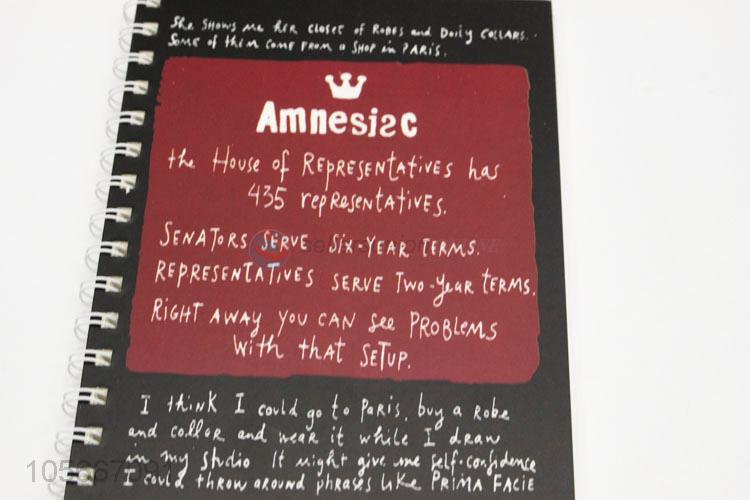 She SHOWS me her closet of Robes and Doily COLLARS.
Some of them come FROM a SHOP in PARIS.
Amnesisc
the House of REPRESENTATIVES has
435 representatives.
SENATORS SERVE Six-YEAR TERMS.
REPRESENTATIVES SERVE Two-year TERMS.
RIGHT AWAY you CAN see PROBLEMS
With that SETUP.
I thINK I could go to PARIS, buy a Robe
and collar and wear it while I draw
in my studio It might give me self-confidence
I could throw around phrases like PRIMA FACIE